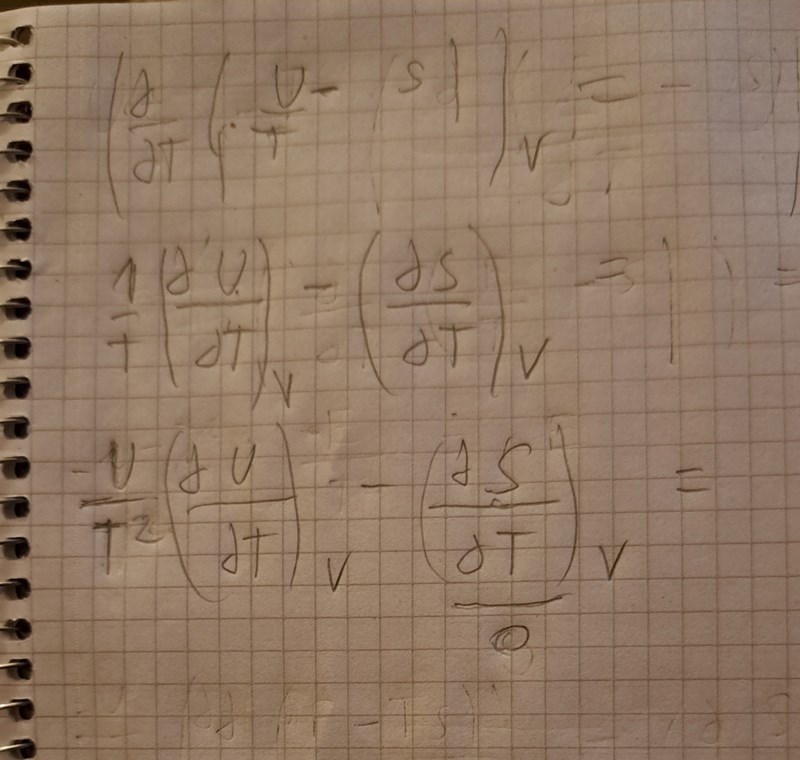 (∂/∂T (U/T - S))_V = -
1/T (∂U/∂T)_V - (∂S/∂T)_V = =
-U/T² (∂U/∂T)_V - (∂S/∂T)_V =
0